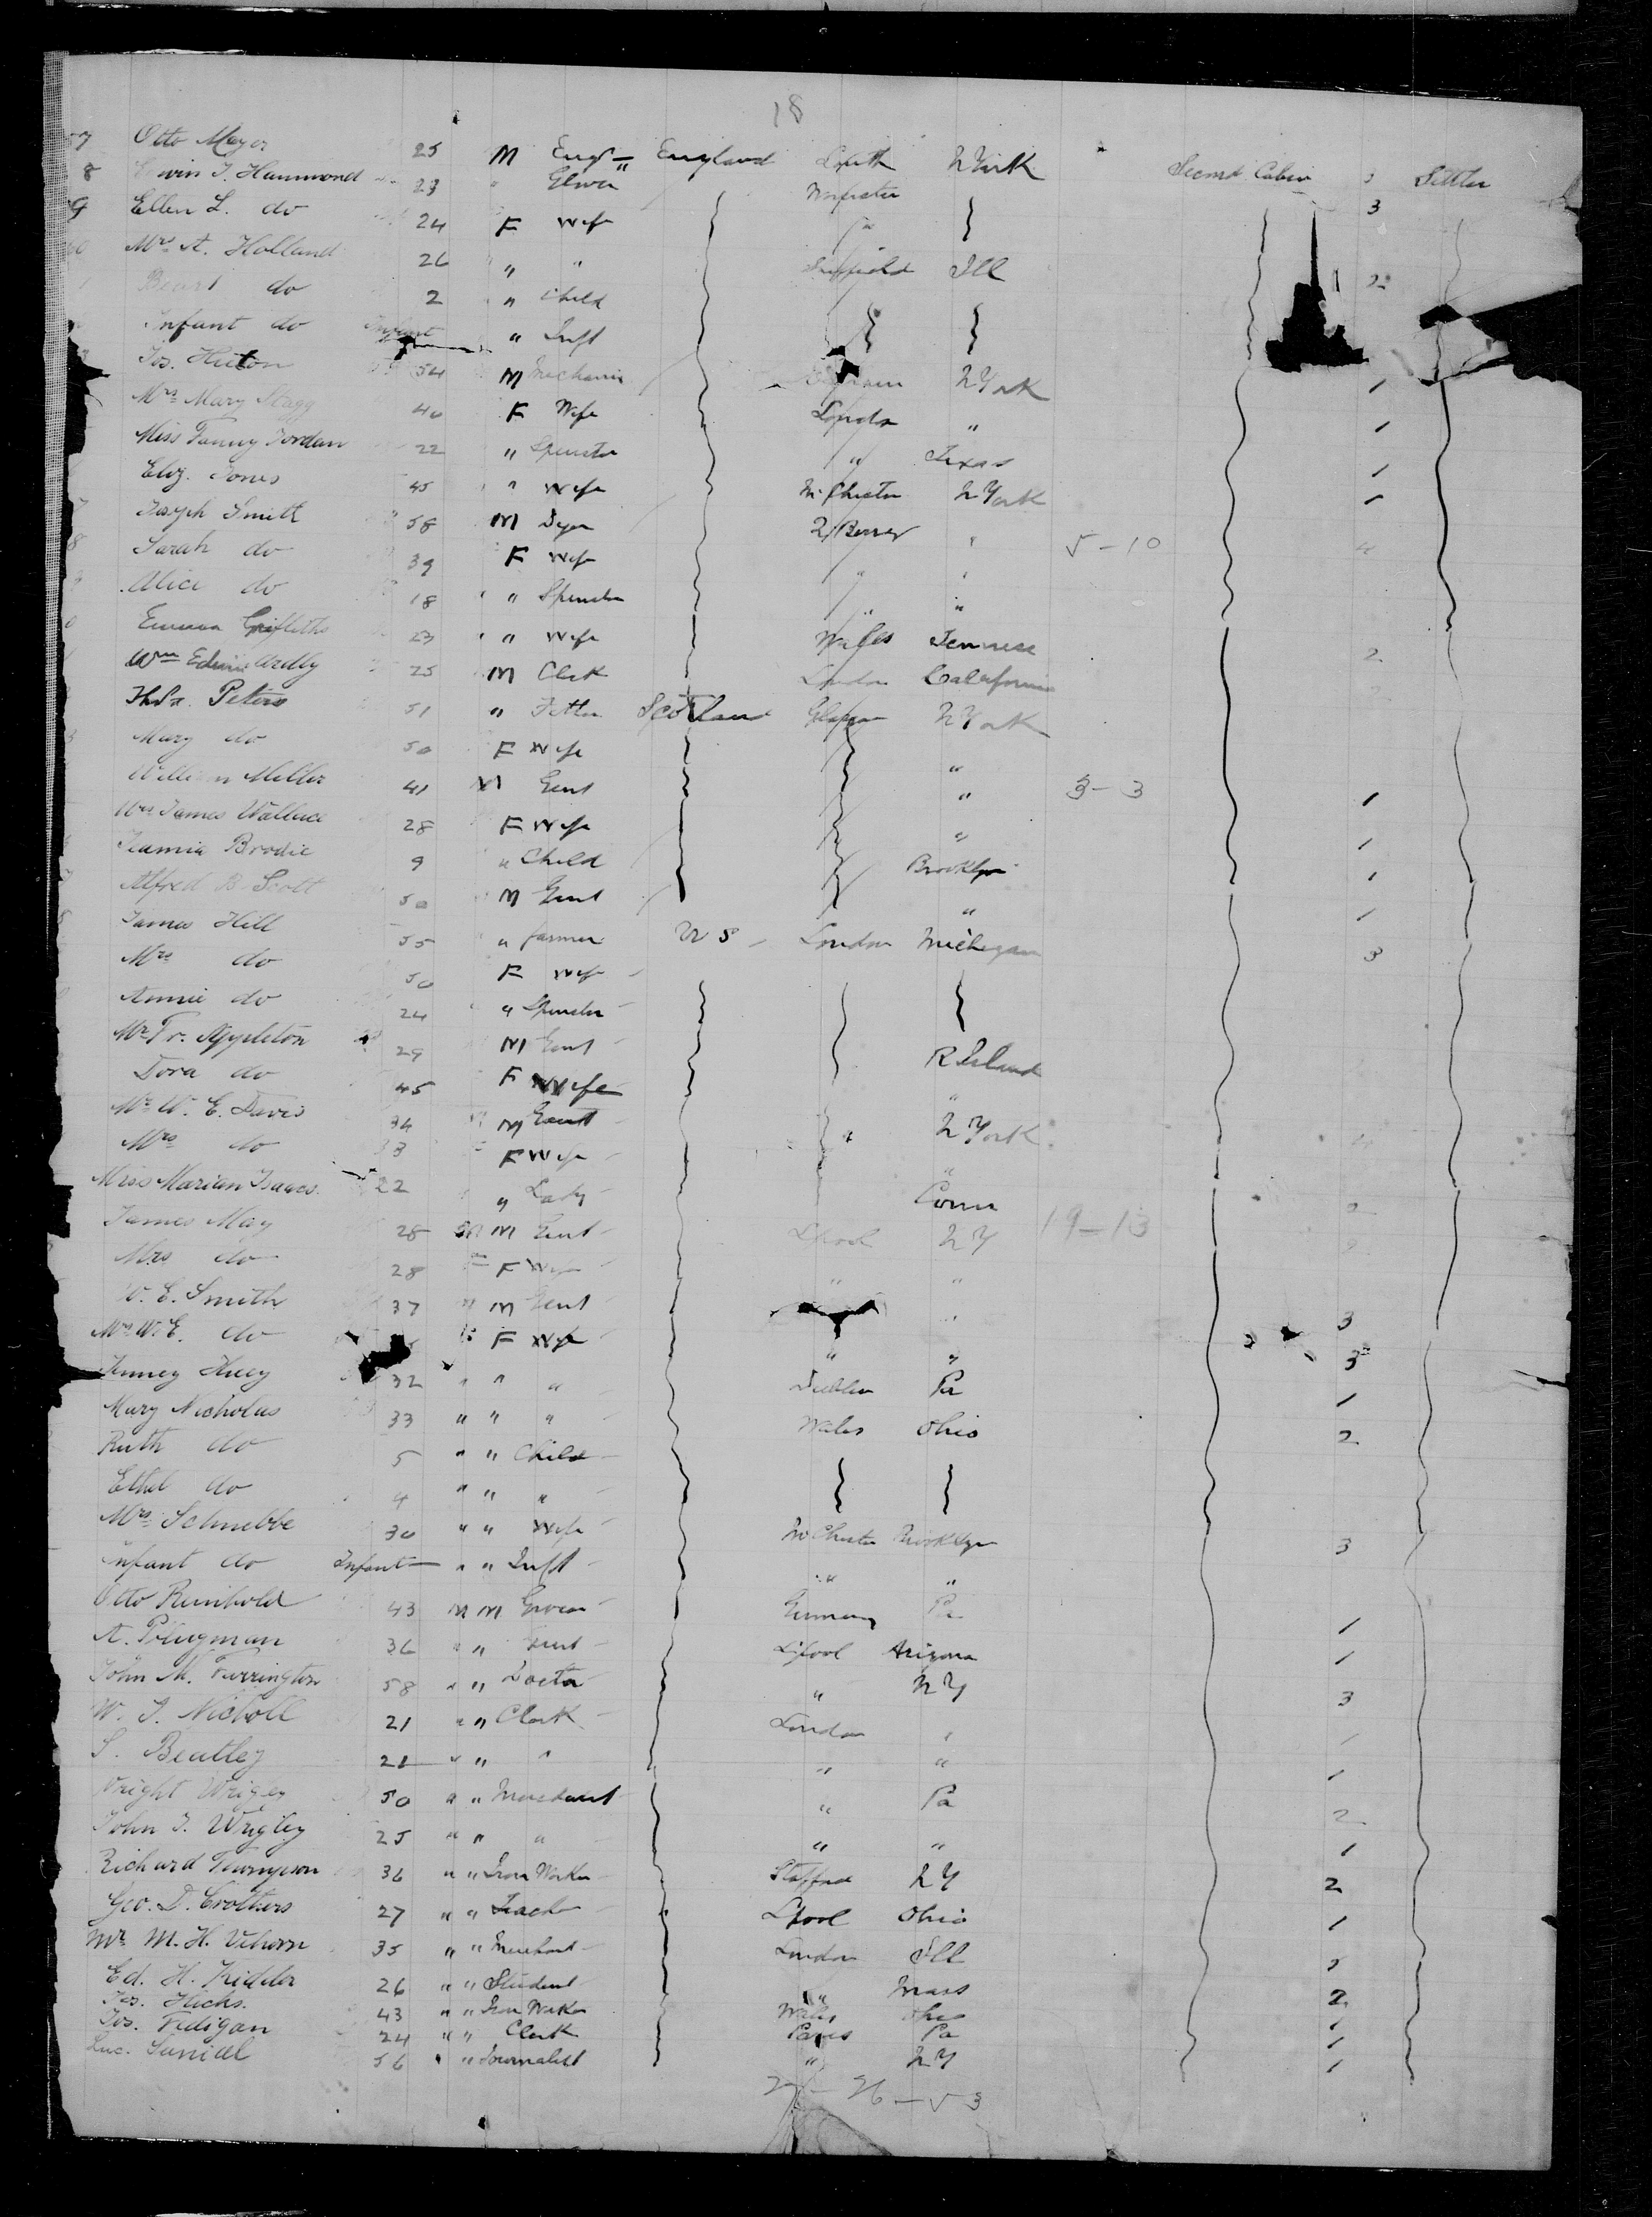 18
57 Otto Mayer 25 M Engr England N York Second Cabin Settler
8 Erwin T. Hammond 23 " Glover Worcester 3
9 Ellen L. do 24 F Wife "
Mrs A. Holland 26 " " Ill 2
do 2 " Child
Infant do Infant " Inft
Jos. Hutton 54 M Mechanic N York 1
Mrs Mary Stagg 40 F Wife London " 1
Miss Fanny Jordan 22 " Spinster " Texas 1
Eliz. Jones 45 " Wife M. Chester N York 1
Joseph Smith 58 M Dyer " 5-10 4
8 Sarah do 39 F Wife " "
Alice do 18 " Spinster " "
Emma Griffiths 23 " Wife Wales Tennese 2
Wm Edwin 25 M Clerk London California
Peters 51 " Fitter Scotland Glasgow N York
Mary do 50 F Wife "
William Miller 41 M Gent " 3-3 1
Mrs James Wallace 28 F Wife " 1
Brodie 9 " Child Brooklyn 1
Alfred B. Scott 50 M Gent " 1
James Hill 55 " farmer U S London Michigan 3
Mrs do 50 F Wife
Annie do 24 " Spinster
Mr Fr. Appleton 29 M Gent R Island
Dora do 45 F Wife "
Mr W. E. Davis 34 M Gent N York
Mrs do 33 F Wife "
Miss Marian Isaacs 22 " Lady Conn
James May 28 M M Gent Lpool N Y 19-13
Mrs do 28 F Wife " "
W. E. Smith 37 " M Gent " 3
Mrs W. E. do F Wife " " 3
32 " " " Dublin Pa 1
Mary Nicholas 33 " " " Wales Ohio 2
Ruth do 5 " " Child
Ethel do 4 " " "
Mrs Schnebbe 30 " " Wife M Chester Brooklyn 3
Infant do Infant " " Inft " "
Otto Reinhold 43 M M Grocer Germany Pa 1
A. 36 " " Gent Lpool Arizona 1
John M. Farrington 58 " " Doctor " N Y 3
W. J. Nicholl 21 " " Clerk London " 1
S. Beatley 21 " " " " " 1
Wright Wrigley 50 " " Merchant " Pa 2
John J. Wrigley 25 " " " " " 1
Richard Thompson 36 " " Iron Worker Stafford N Y 2
Geo. D. Crothers 27 " " Teacher Lpool Ohio 1
Mr M. H. 35 " " Merchant London Ill
Ed. H. Kidder 26 " " Student " Mass 2
Jos. Hicks. 43 " " Iron Worker Wales Ohio 1
Jos. Fedigan 24 " " Clerk Paris Pa 1
Luc. 56 " " Journalist " N Y 1